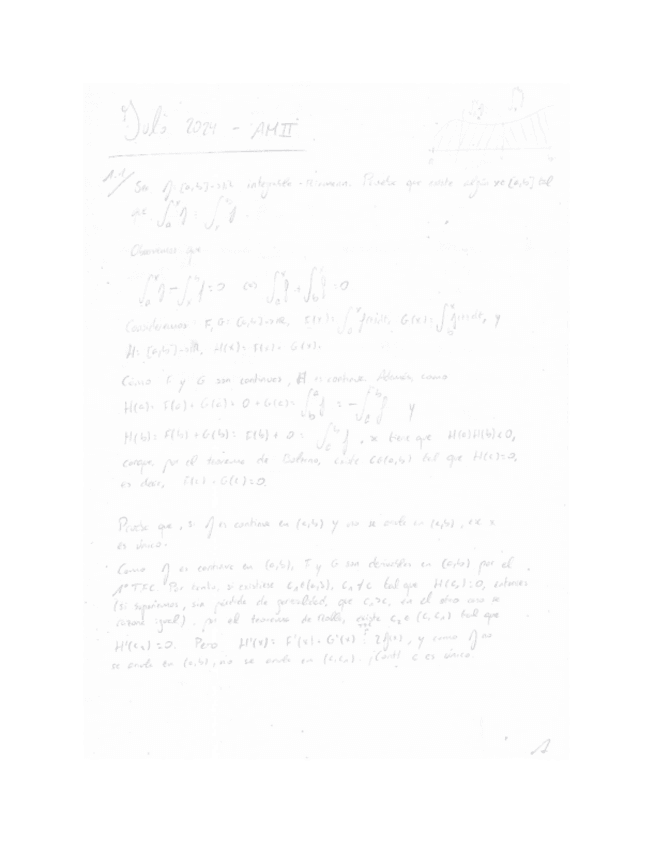 Julio 2024 - AMII
1.1/ Sea f: [a,b]→ℝ integrable-Riemann. Prueba que existe x∈[a,b] tal
que ∫_a^x f = ∫_x^b f.
Observemos que
∫_a^x f - ∫_x^b f = 0 ⇔ ∫_a^x f + ∫_b^x f = 0
Consideremos F, G: [a,b]→ℝ, F(x) = ∫_a^x f, G(x) = ∫_b^x f, y
H: [a,b]→ℝ, H(x) = F(x) + G(x).
Como F y G son continuas, H es continua. Además, como
H(a) = F(a) + G(a) = 0 + G(a) = ∫_b^a f = -∫_a^b f y
H(b) = F(b) + G(b) = F(b) + 0 = ∫_a^b f, se tiene que H(a)H(b)<0,
por el teorema de Bolzano, existe c∈(a,b) tal que H(c)=0,
es decir, F(c) + G(c) = 0.
Prueba que, si f es continua en (a,b) y no se anula en (a,b), ese x
es único.
Como f es continua en (a,b), F y G son derivables en (a,b) por el
1º TFC. Por tanto, si existiese c₁∈(a,b), c₁≠c tal que H(c₁)=0, entonces
(si suponemos, sin pérdida de generalidad, que c₁>c, en el otro caso se
razona igual), por el teorema de Rolle, existe c₂∈(c,c₁) tal que
H'(c₂)=0. Pero H'(x) = F'(x) + G'(x) = 2f(x), y como f no
se anula en (a,b), no se anula en (c,c₁). c es único.
1